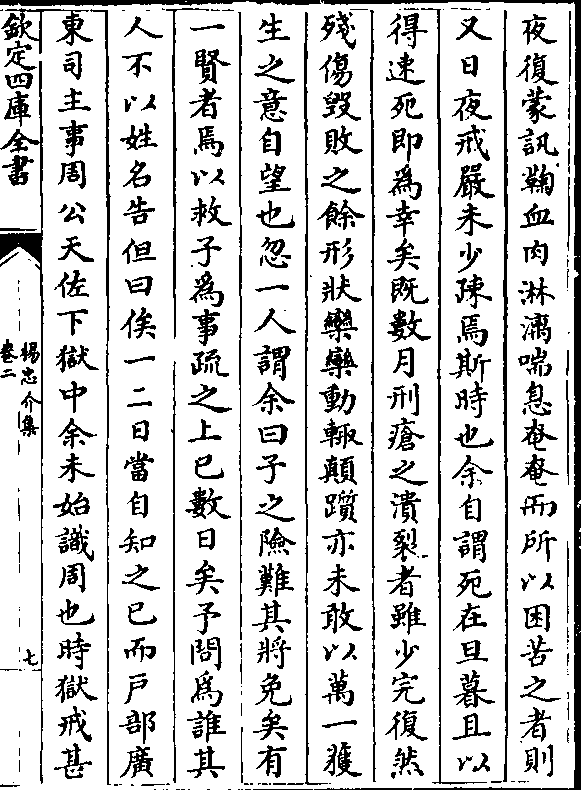 夜復蒙訊鞫血肉淋漓喘息奄奄而所以困苦之者則
又日夜戒嚴未少疎焉斯時也余自謂死在旦暮且以
得速死即為幸矣既數月刑瘡之潰裂者雖少完復然
殘傷毀敗之餘形狀欒欒動輒顛躓亦未敢以萬一獲
生之意自望也忽一人謂余曰子之險難其將免矣有
一賢者焉以救子為事疏之上已數日矣予問為誰其
人不以姓名告但曰俟一二日當自知之已而戸部廣
東司主事周公天佐下獄中余未始識周也時獄戒甚
欽定四庫全書
楊忠介集
卷二
七